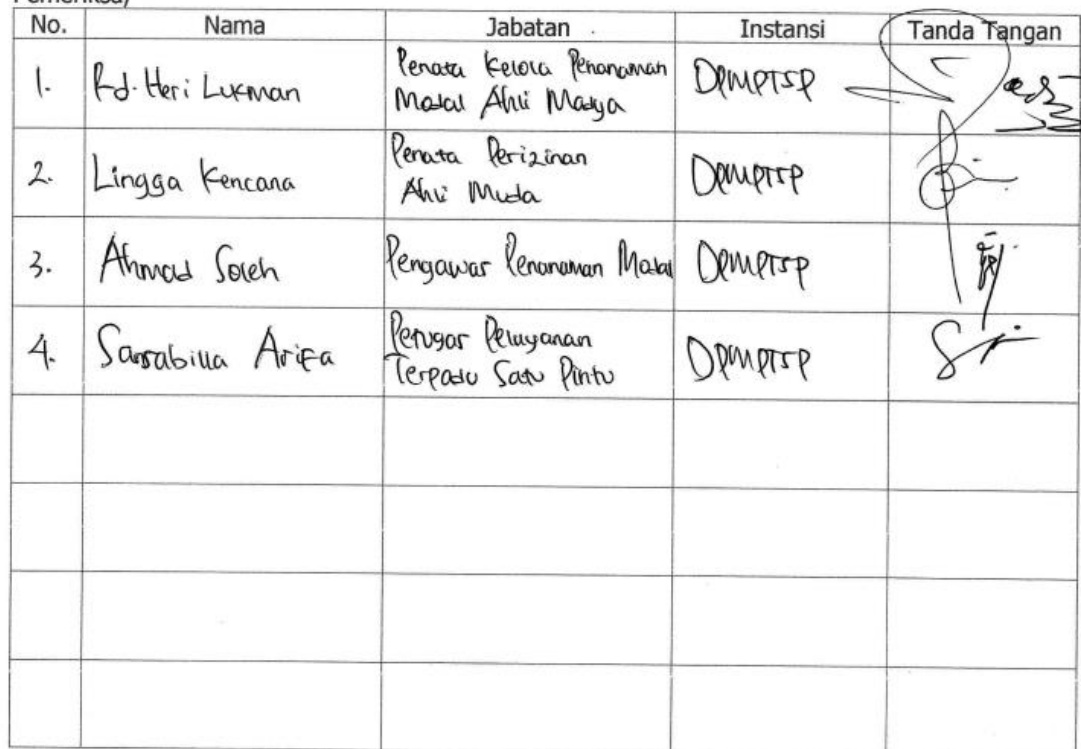 Pemeriksa)
No. Nama Jabatan Instansi Tanda Tangan
1. Rd. Heri Lukman Penata Kelola Penanaman Modal Ahli Madya DPMPTSP
2. Lingga Kencana Penata Perizinan Ahli Muda DPMPTSP
3. Ahmad Soleh Pengawas Penanaman Modal DPMPTSP
4. Salsabilla Arifa Petugas Pelayanan Terpadu Satu Pintu DPMPTSP